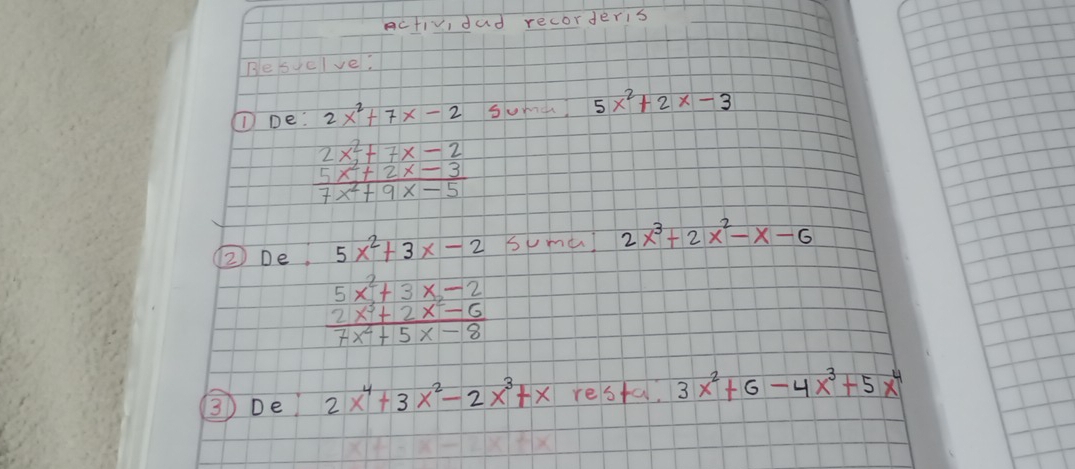 Actividad recorderis
Resuelve:
① De: 2x²+7x-2 suma: 5x²+2x-3
2x²+7x-2
5x²+2x-3
7x²+9x-5
② De: 5x²+3x-2 suma: 2x³+2x²-x-6
5x²+3x-2
2x³+2x²-6
7x²+5x-8
③ De: 2x⁴+3x²-2x³+x resta: 3x²+6-4x³+5x⁴